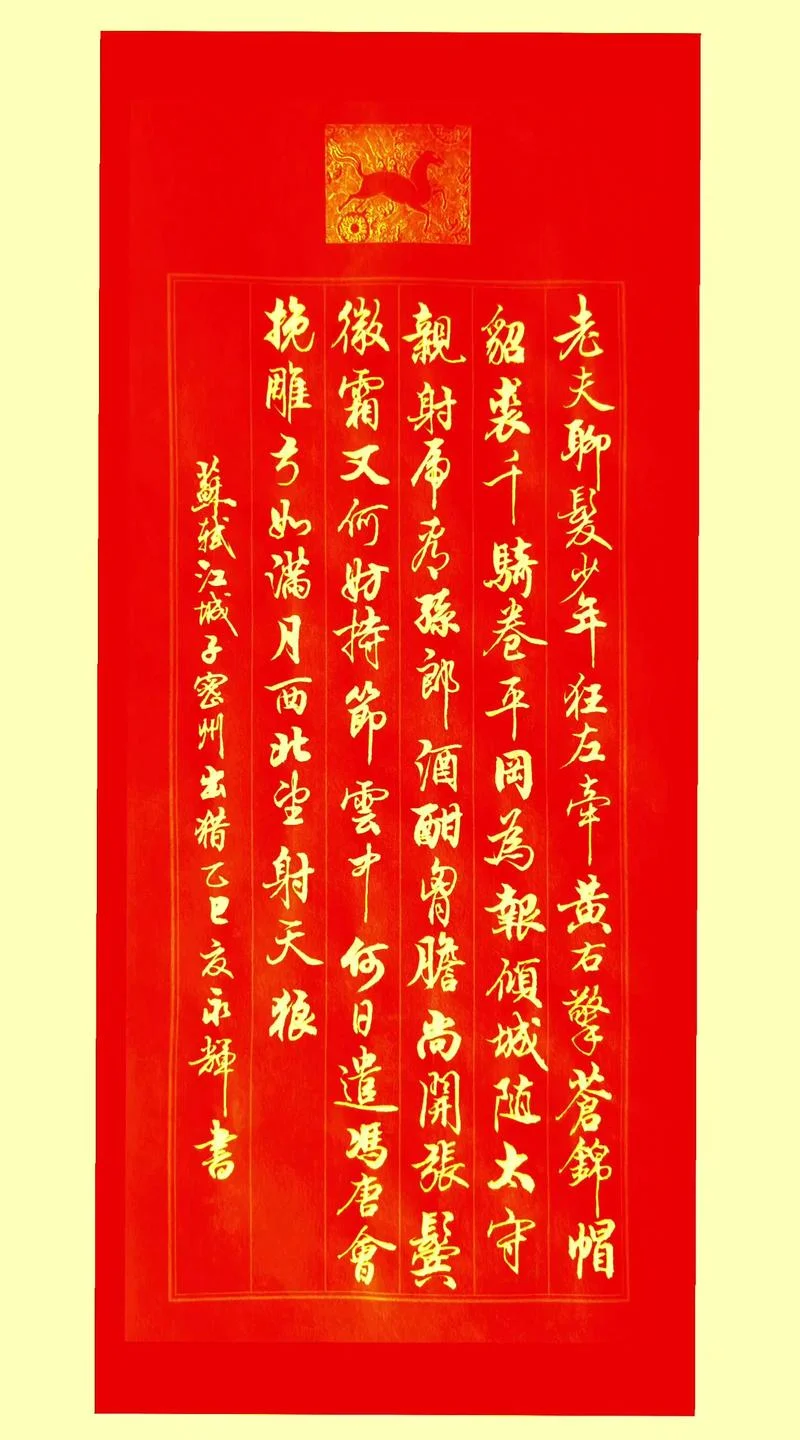 老夫聊髮少年狂左牽黄右擎蒼錦帽
貂裘千騎卷平岡為報傾城随太守
親射虎看孫郎酒酣胷膽尚開張鬢
微霜又何妨持節雲中何日遣馮唐會
挽雕弓如滿月西北望射天狼
蘇軾江城子密州出猎乙巳夏永輝書